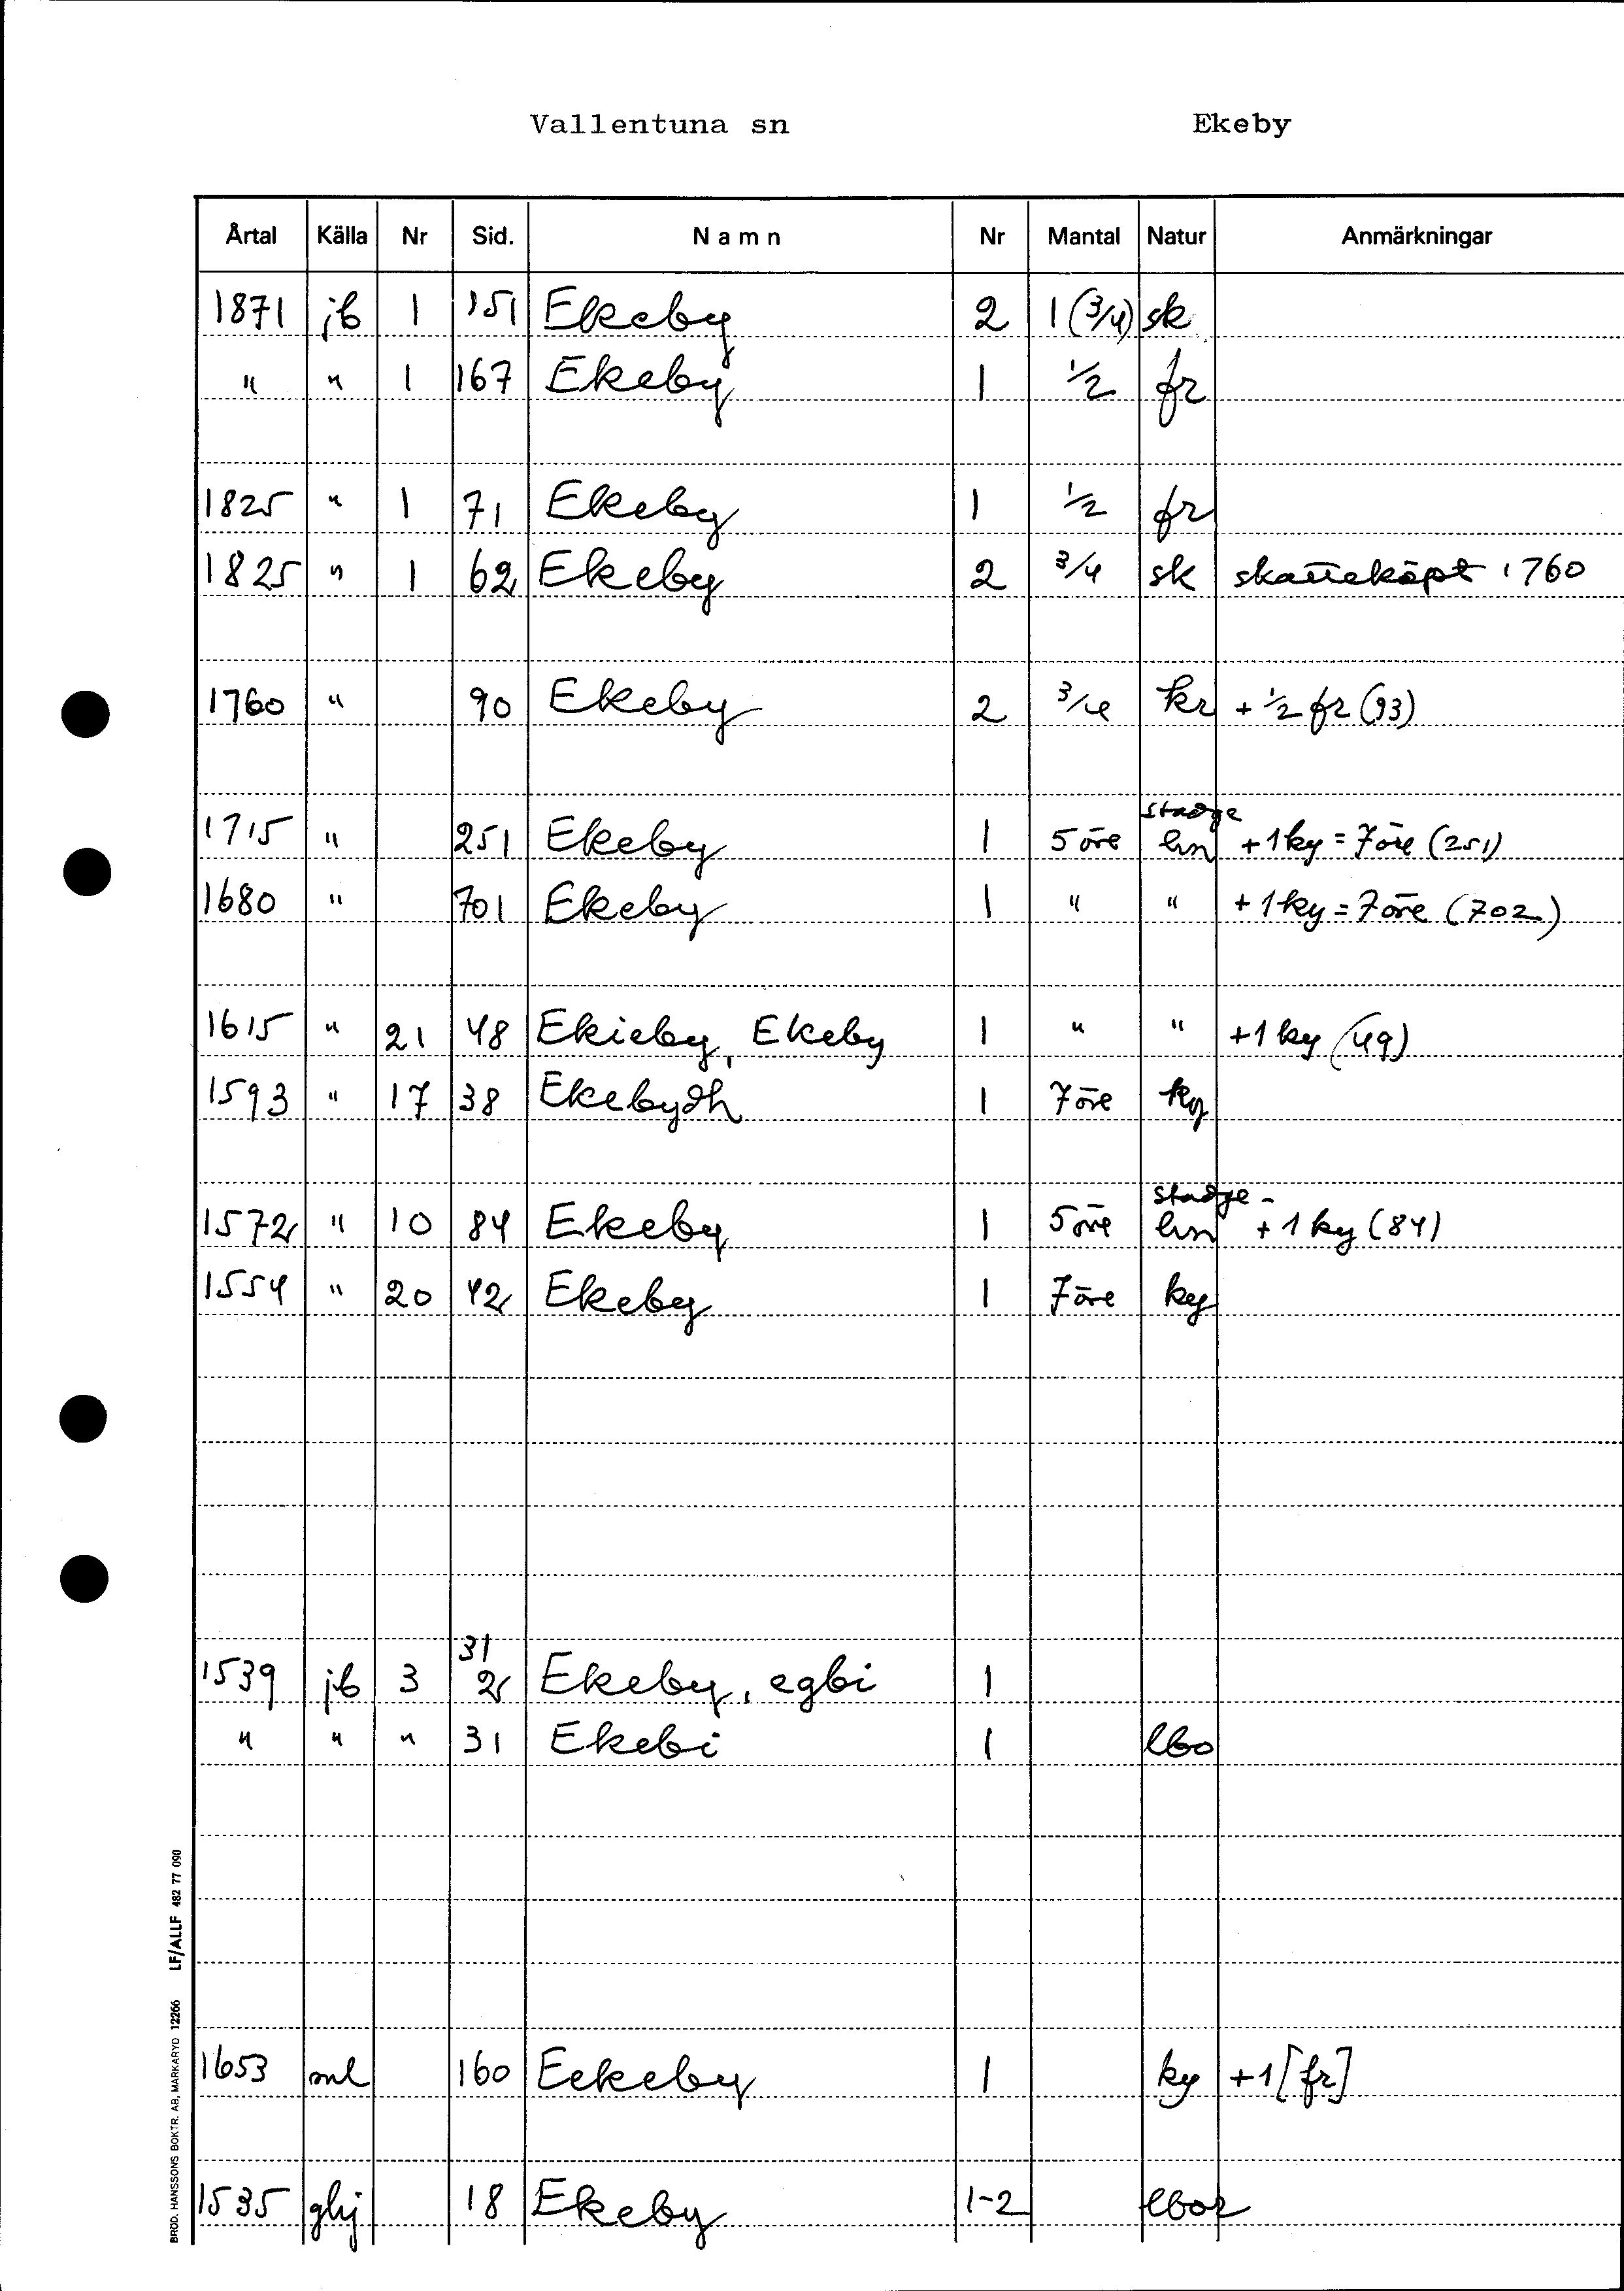 Vallentuna sn Ekeby
Årtal Källa Nr Sid. Namn Nr Mantal Natur Anmärkningar
1871 jb 1 151 Ekeby 2 1 (3/4) sk
" " 1 167 Ekeby 1 1/2 fr
1825 " 1 71 Ekeby 1 1/2 fr
1825 " 1 62 Ekeby 2 3/4 sk skatteköpt 1760
1760 " 90 Ekeby 2 3/4 kr + 1/2 fr (93)
stadge
1715 " 251 Ekeby 1 5 öre hn + 1 ky = 7 öre (251)
1680 " 701 Ekeby 1 " " + 1 ky = 7 öre (702)
1615 " 21 48 Ekieby, Ekeby 1 " " + 1 ky (49)
1593 " 17 38 Ekebydh 1 7 öre ky
stadge-
1572 " 10 84 Ekeby 1 5 öre hn + 1 ky (84)
1554 " 20 42 Ekeby 1 7 öre ky
31
1539 jb 3 2 Ekeby, egbi 1
" " " 31 Ekebi 1 lbo
1653 ml 160 Eekeby 1 ky + 1 [fr]
1535 ghj 18 Ekeby 1-2 lbor
BRÖD. HANSSONS BOKTR. AB, MARKARYD 12266 LF/ALLF 482 77 090